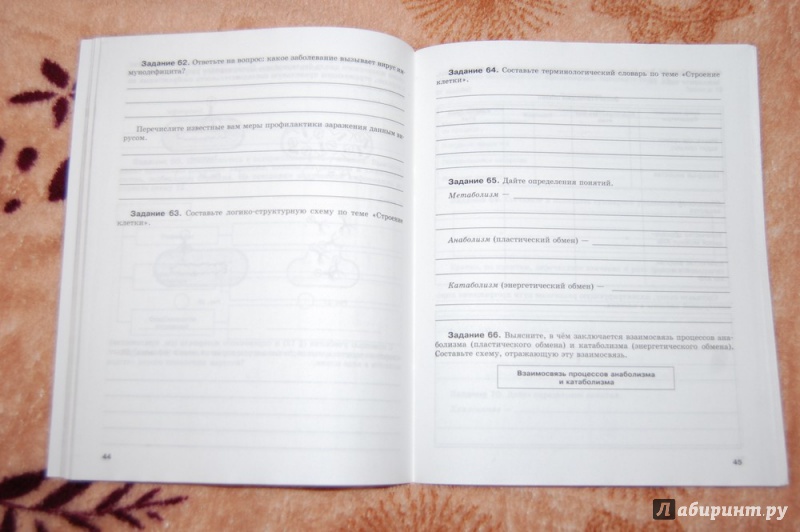 Задание 62. Ответьте на вопрос: какое заболевание вызывает вирус им-
мунодефицита?
Перечислите известные вам меры профилактики заражения данным ви-
русом.
Задание 63. Составьте логико-структурную схему по теме «Строение
клетки».
44
Задание 64. Составьте терминологический словарь по теме «Строение
клетки».
Задание 65. Дайте определения понятий.
Метаболизм —
Анаболизм (пластический обмен) —
Катаболизм (энергетический обмен) —
Задание 66. Выясните, в чём заключается взаимосвязь процессов ана-
болизма (пластического обмена) и катаболизма (энергетического обмена).
Составьте схему, отражающую эту взаимосвязь.
Взаимосвязь процессов анаболизма
и катаболизма
45
Лабиринт.ру